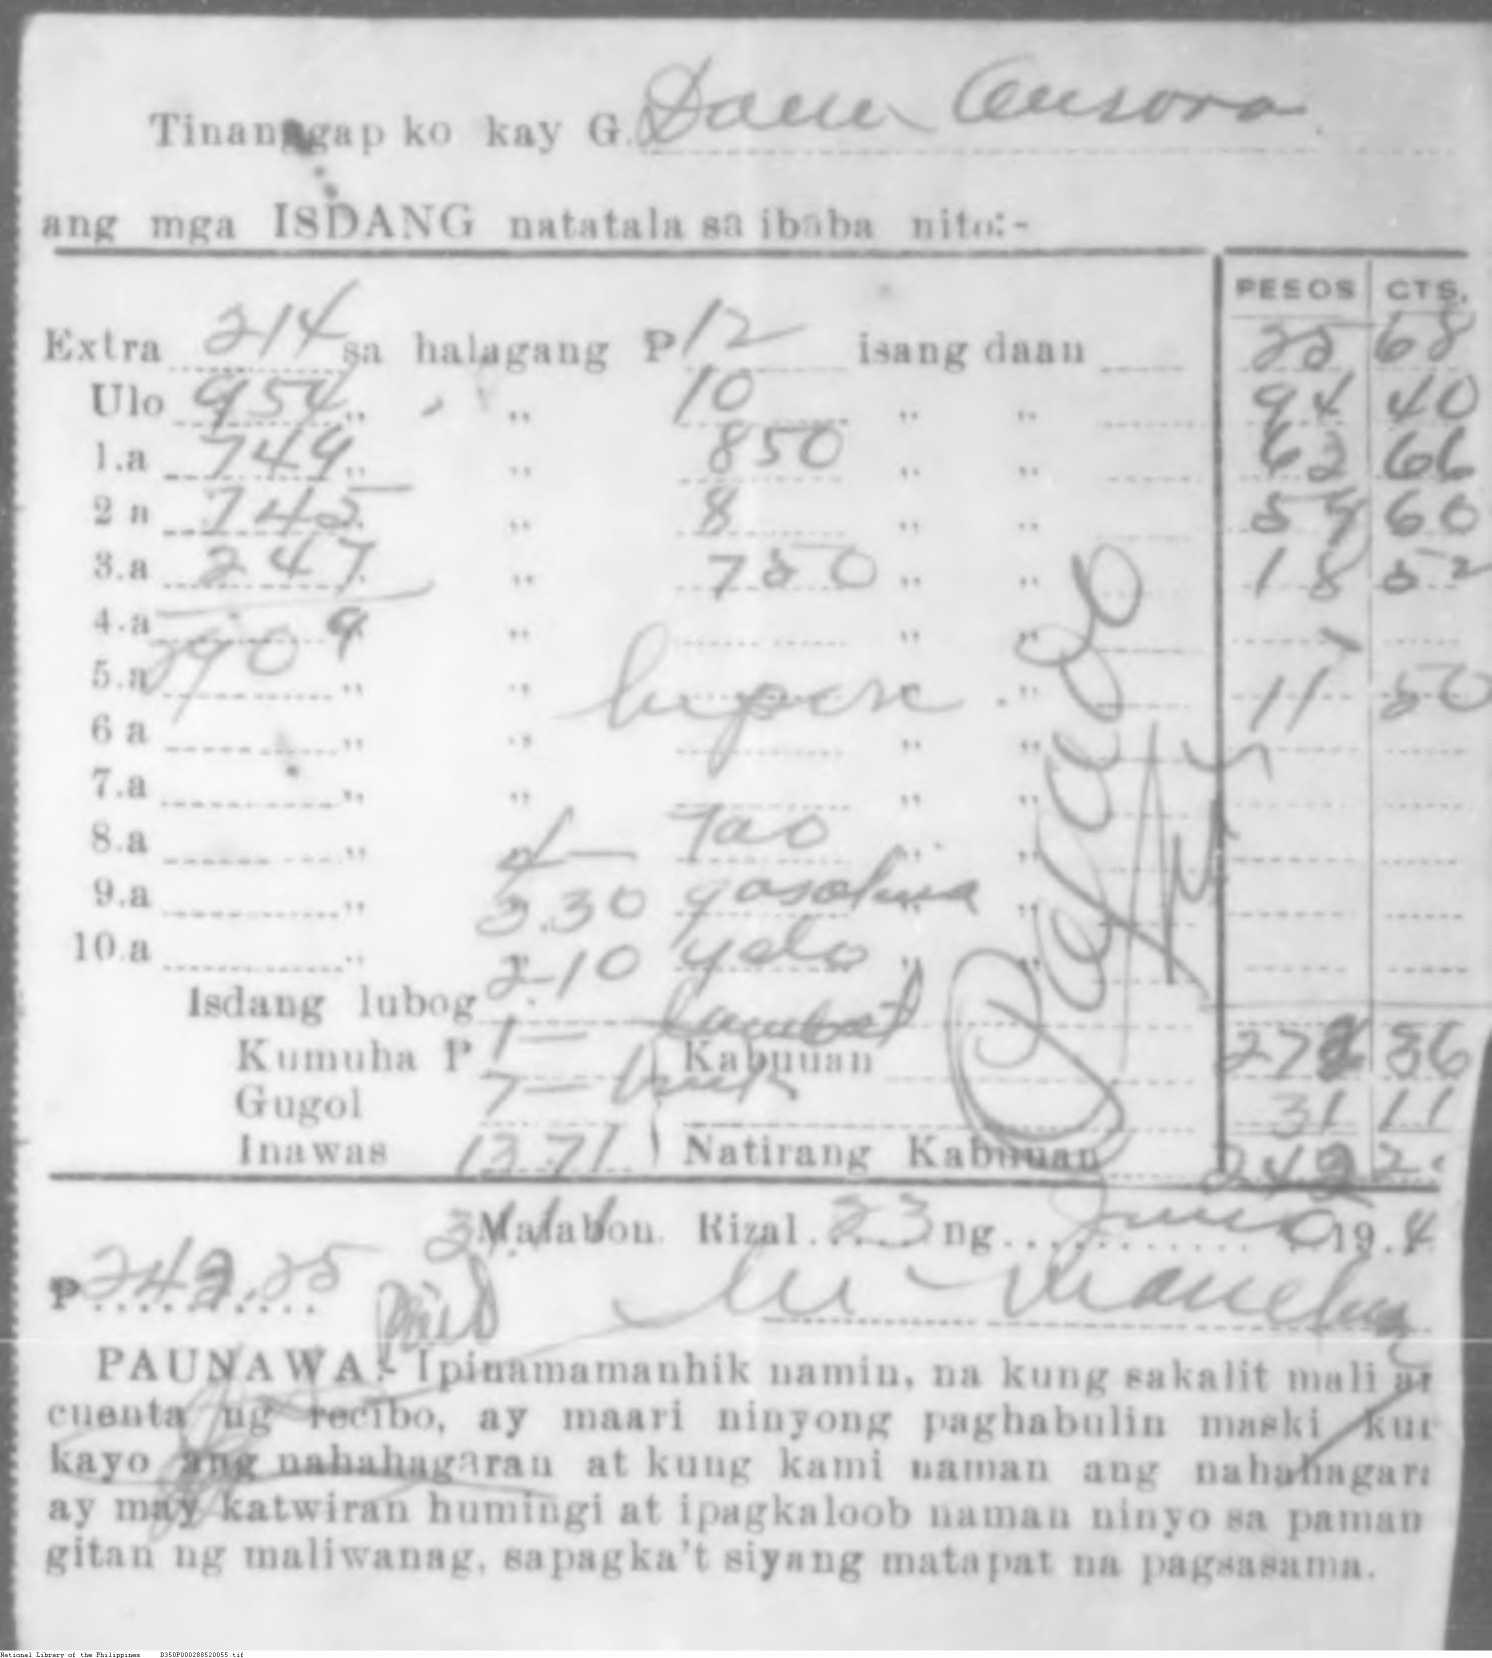 Tinanggap ko kay G. Dam Ansora
ang mga ISDANG natatala sa ibaba nito:-
PESOS CTS.
Extra 214 sa halagang P 12 isang daan 25 68
Ulo 954 ,, ,, 10 ,, ,, 94 40
1.a 749 ,, ,, 850 ,, ,, 62 66
2 a 745 ,, 8 ,, ,, 59 60
3.a 247 ,, 750 ,, ,, 18 52
4.a ,, ,, ,,
2909
5.a ,, ,, ,, ,, 11 50
6 a ,, ,, ,, ,,
7.a ,, ,, ,, ,,
8.a ,, 4— Tao ,, ,,
9.a ,, 3.30 gasolina ,,
10.a ,, 2.10 yelo ,, ,,
Isdang lubog 1— lambat
Kumuha P Kabuuan 36
Gugol 7— 31 11
Inawas 13.71 Natirang Kabuuan
31.11
Malabon. Rizal. 23 ng Junio 19.4
P 242.25 Paid
PAUNAWA:- Ipinamamanhik namin, na kung sakalit mali at
cuenta ng recibo, ay maari ninyong paghabulin maski kur
kayo ang nahahagaran at kung kami naman ang nahahagara
ay may katwiran humingi at ipagkaloob naman ninyo sa paman
gitan ng maliwanag, sapagka't siyang matapat na pagsasama.
National Library of the Philippines D350P000288520055.tif